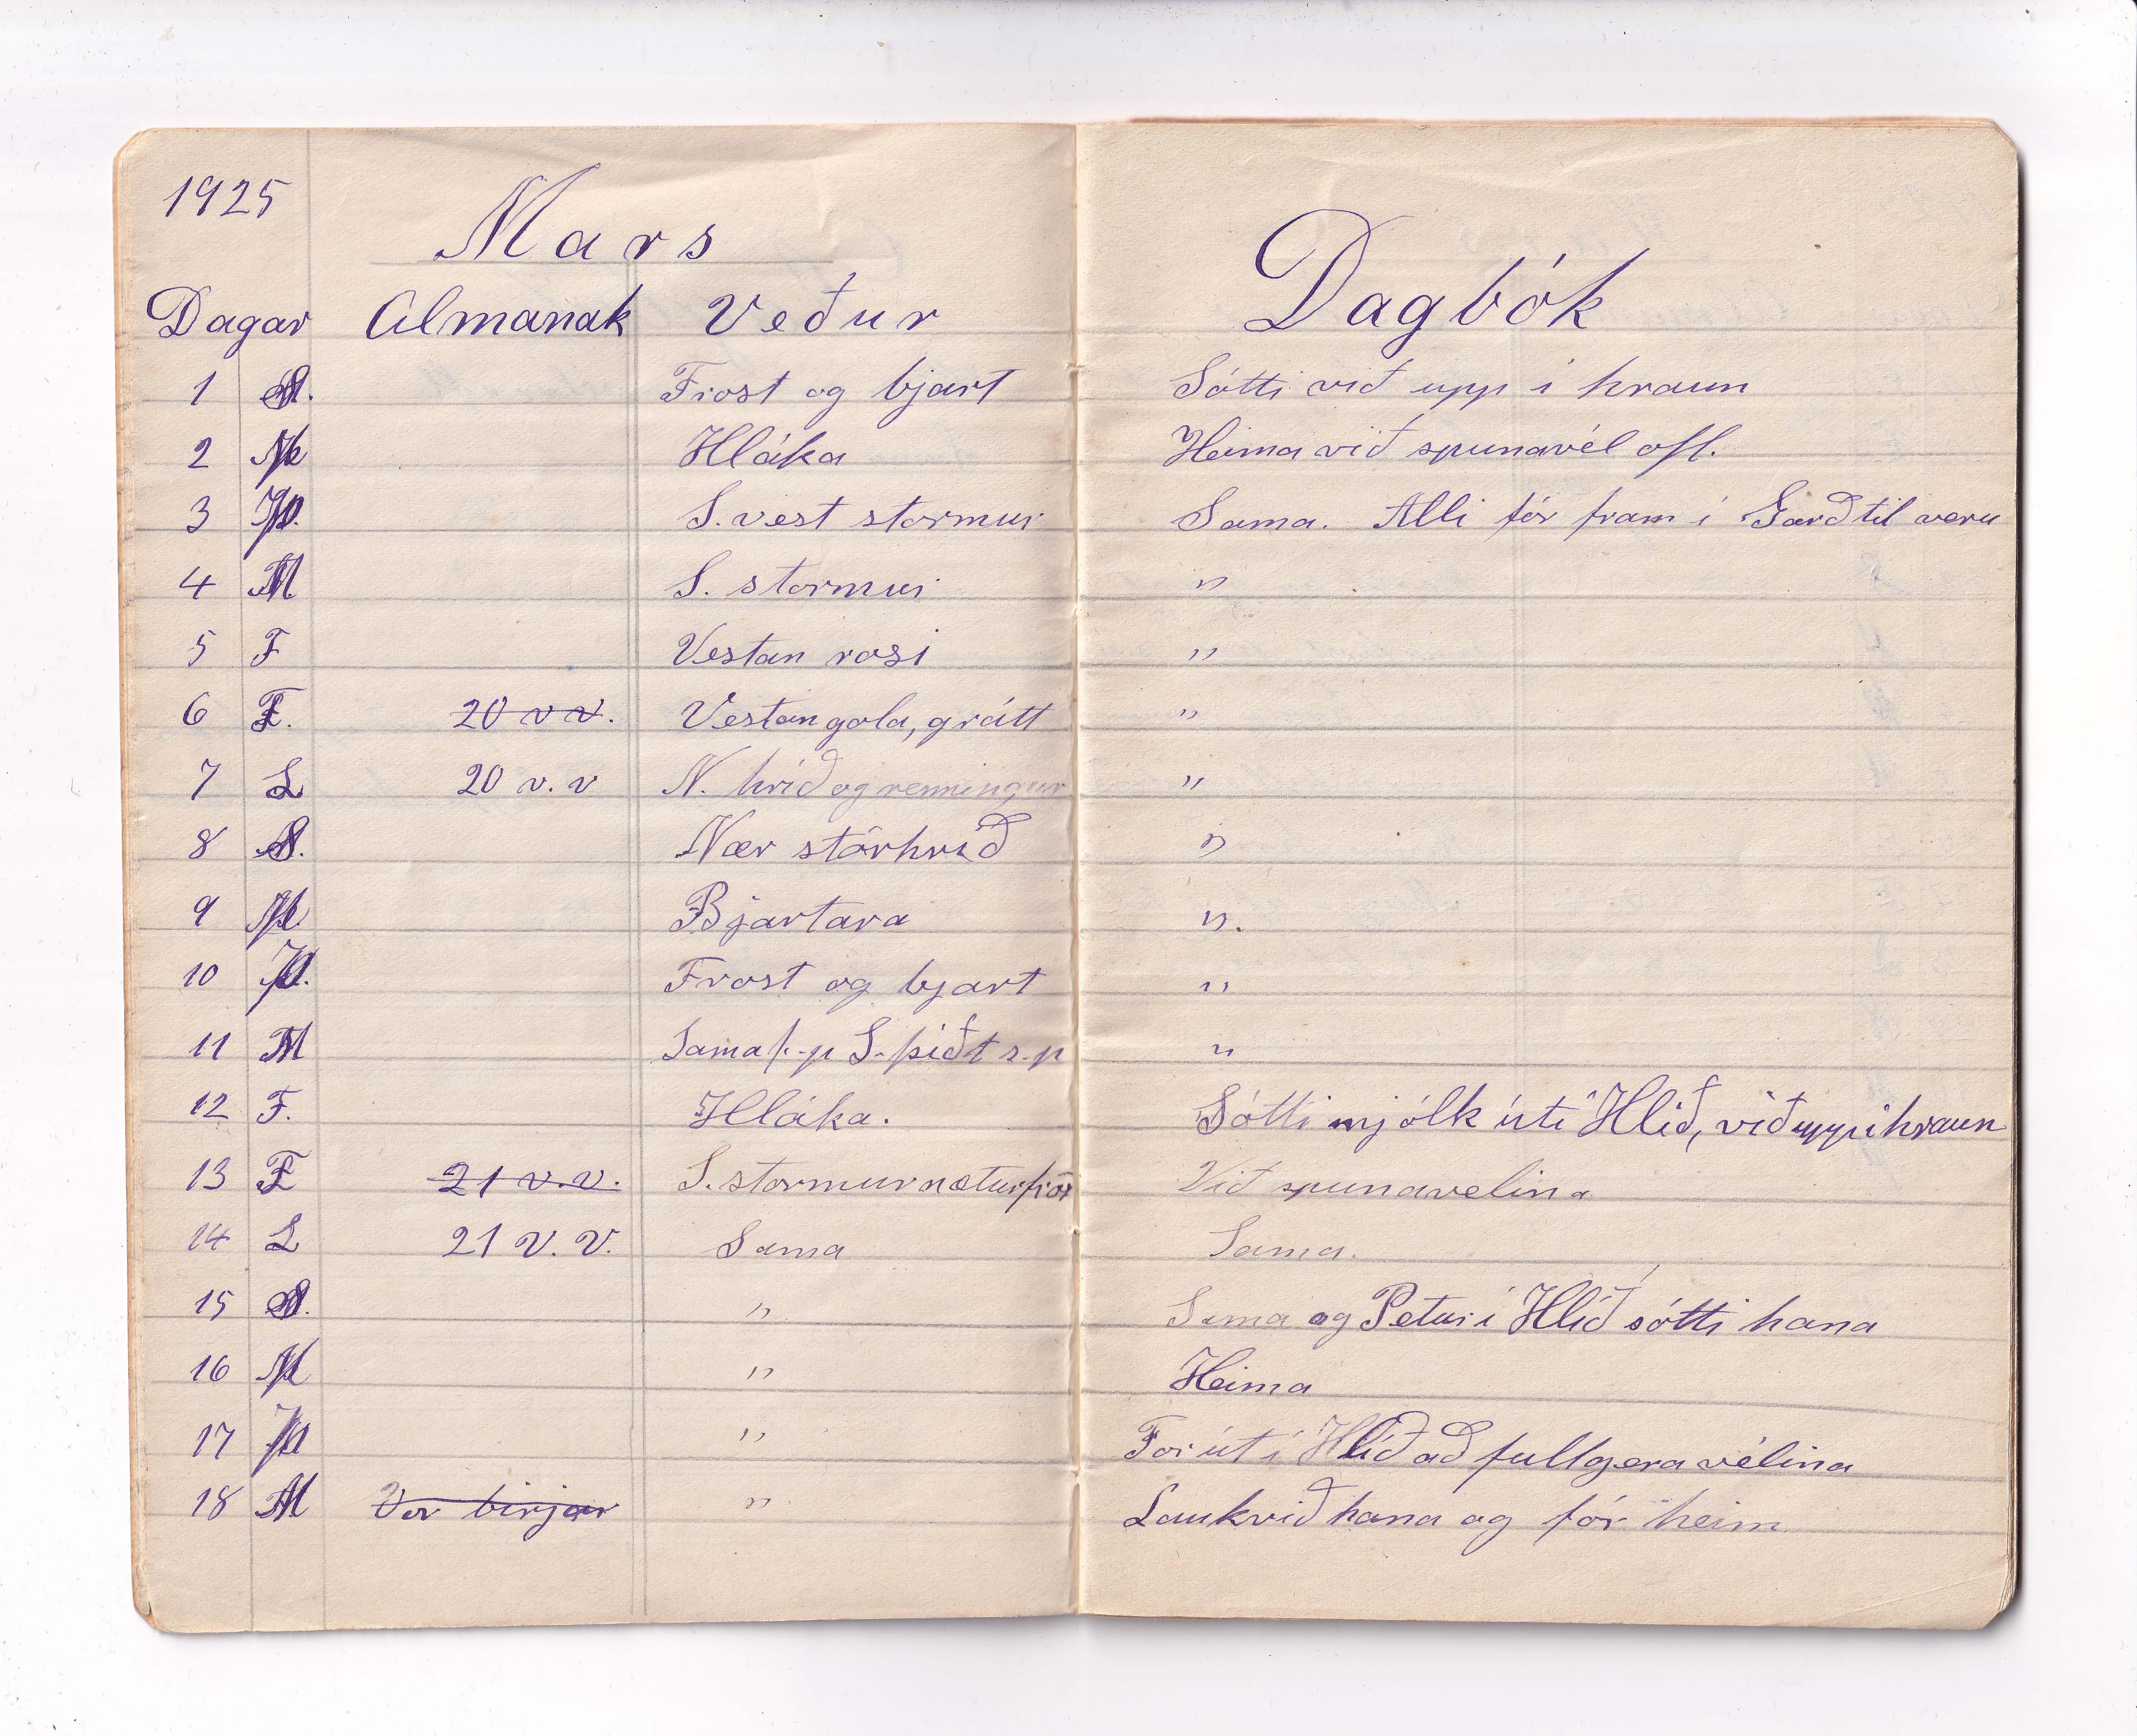 1925
Mars
Dagar Almanak Veður
1 S. Frost og bjart
2 M Hláka
3 Þ. S. vest stormur
4 M S. stormur
5 F Vestan rosi
6 F. 20 v v. Vestangola, grátt
7 L 20 v. v N. hríð og renningur
8 S. Nær stórhríð
9 M Bjartara
10 Þ. Frost og bjart
11 M Sama f.-p S. þiðt s.-p
12 F. Hláka.
13 F 21 v.v. S. stormur næturfrost
14 L 21 V. V. Sama
15 S. "
16 M "
17 Þ "
18 M Vor birjar "
Dagbók
Sótti við upp í hraun
Heima við spunavél ofl.
Sama. Alli fór fram í Garð til veru
"
"
"
"
"
".
"
"
Sótti mjólk útí Hlíð, við uppi hraun
Við spunavelina
Sama.
Sama og Petur í Hlíð sótti hana
Heima
For út í Hlíð að fullgera vélina
Lauk við hana og fór heim